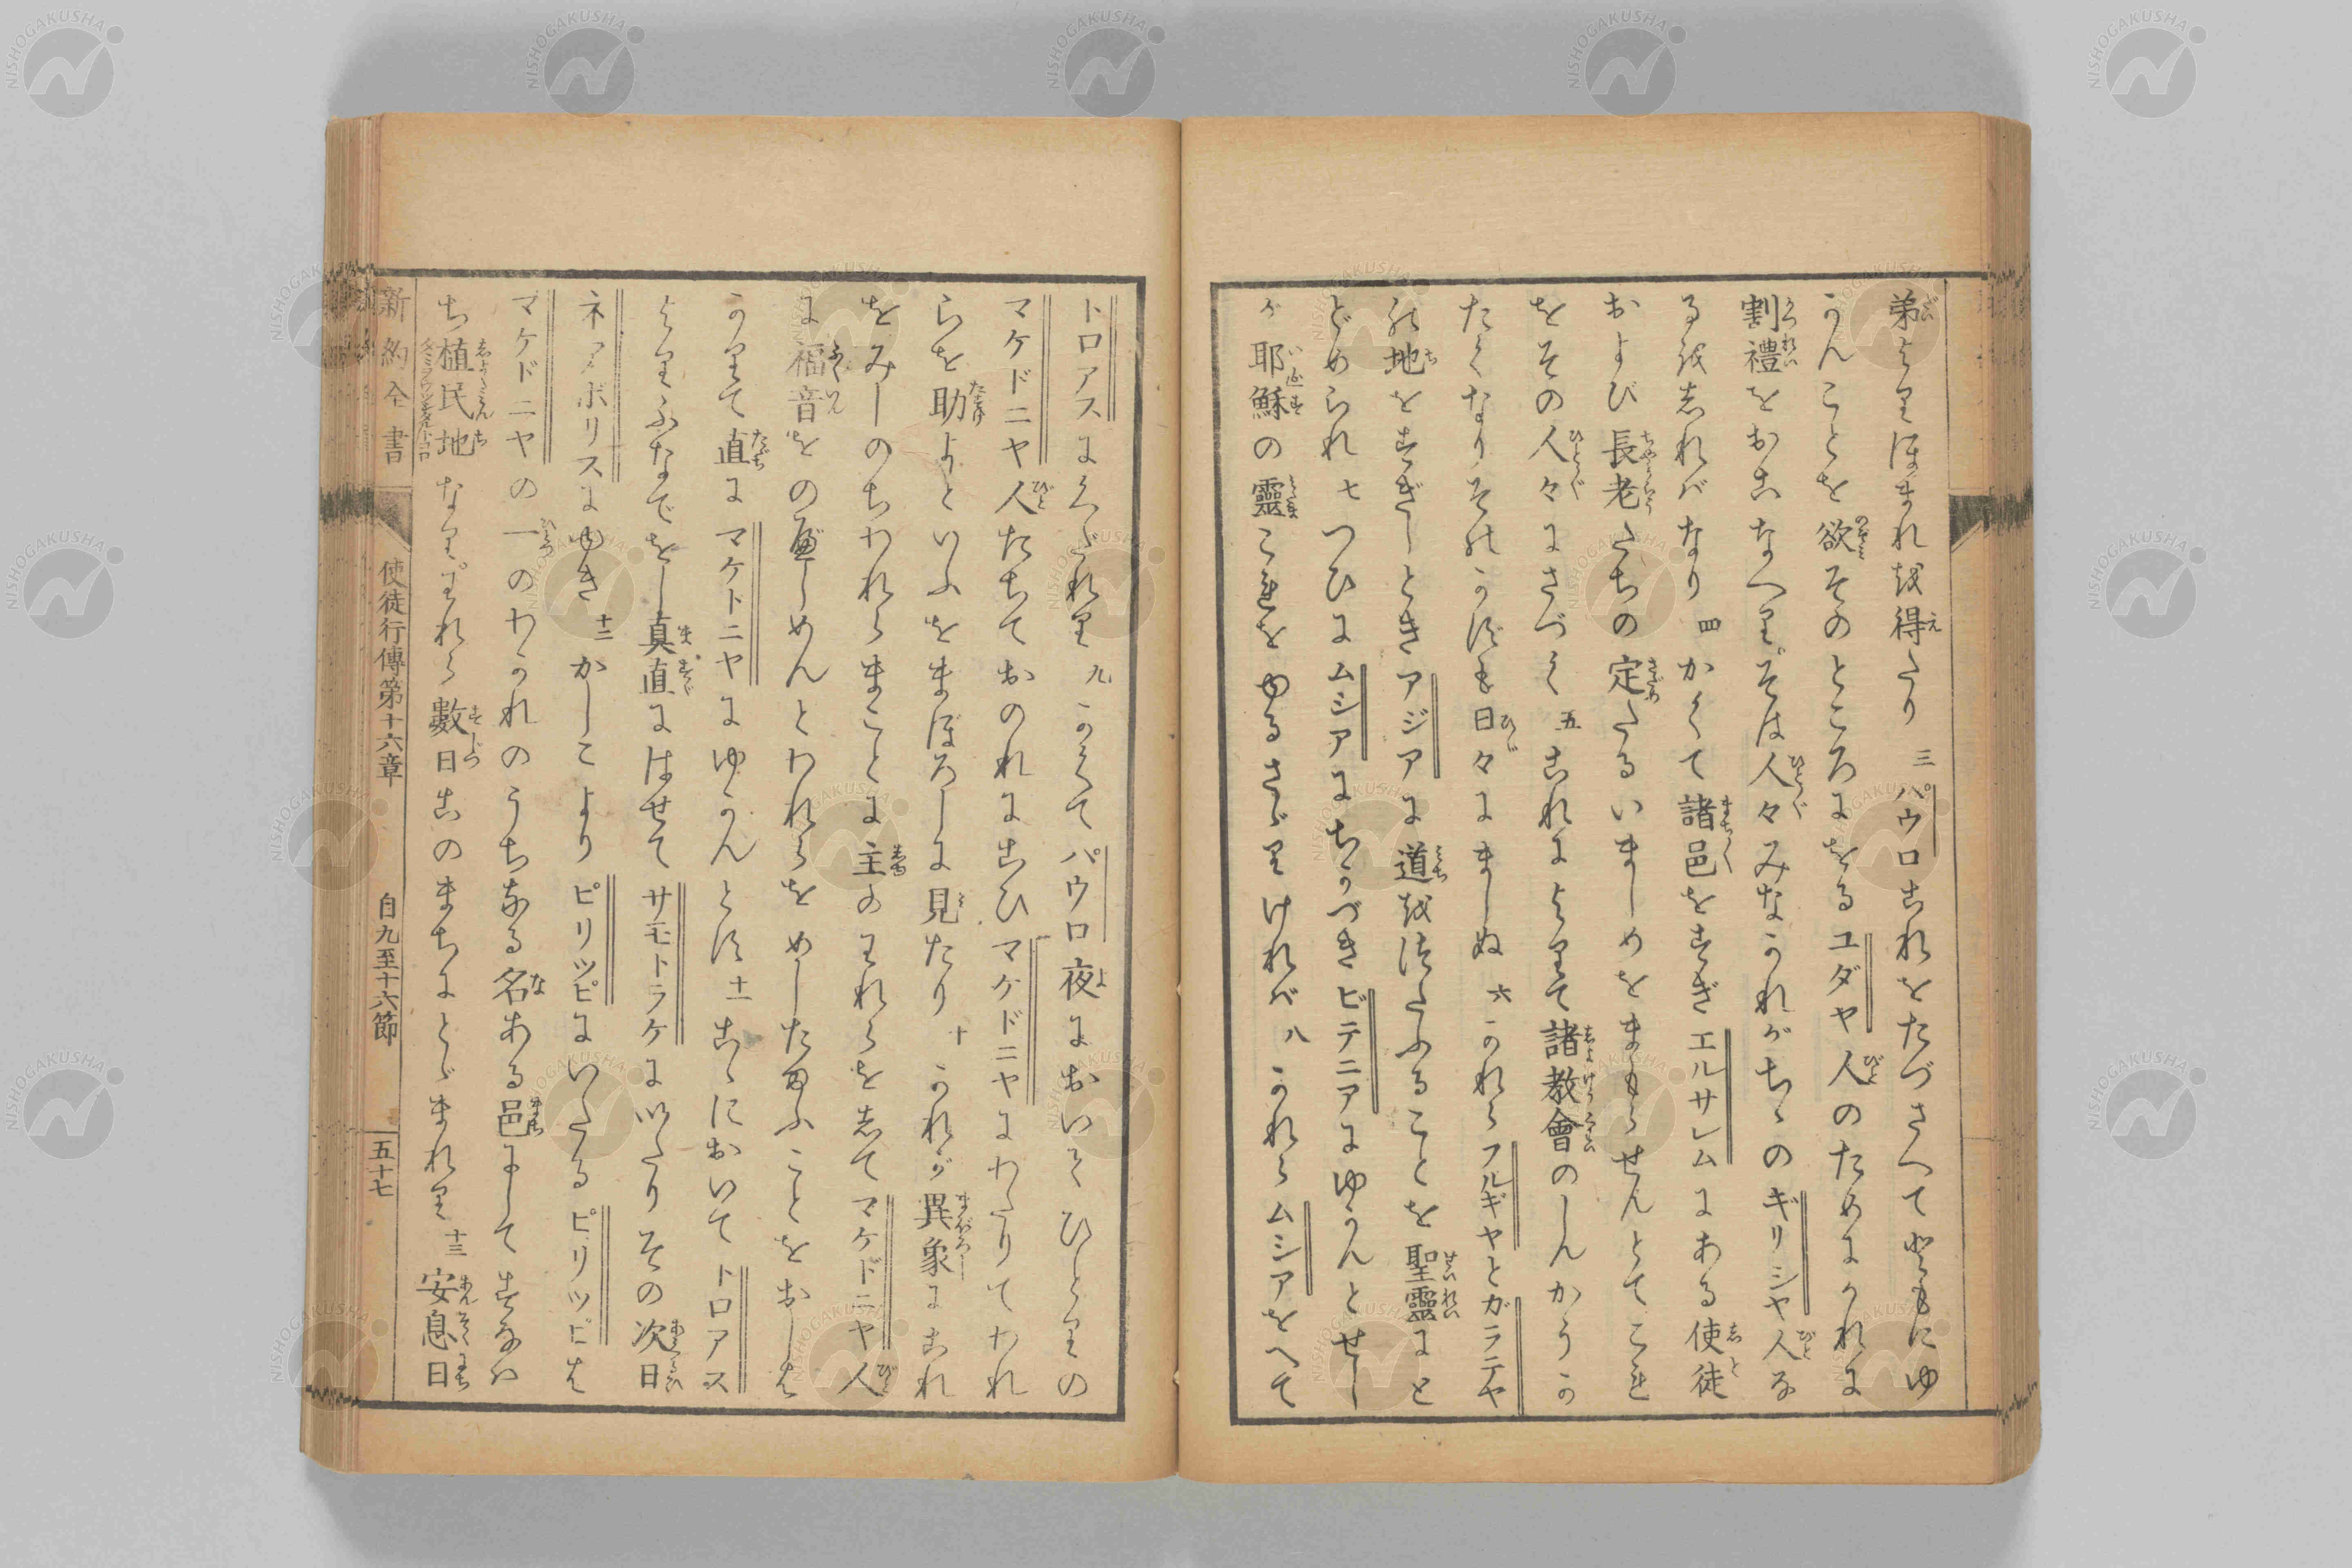 弟よりほまれを得たり 三 パウロこれをたづさへてともにゆ
かんことを欲そのところにをるユダヤ人のためにかれに
割禮をおこなへりそは人々みなかれがちゝのギリシヤ人な
るをしればなり 四 かくて諸邑をすぎエルサレムにある使徒
および長老たちの定たるいましめをまもらせんとてこれ
をその人々にさづく 五 これによりて諸教會のしんかうか
たくなりそのかずも日々にましぬ 六 かれらフルギヤとガラテヤ
の地をすぎしときアジアに道をつたふることを聖靈にと
どめられ 七 つひにムシアにちかづきビテニアにゆかんとせし
が耶穌の靈これをゆるさゞりければ 八 かれらムシアをへて
トロアスにくだれり 九 かくてパウロ夜においてひとりの
マケドニヤ人たちておのれにこひマケドニヤにわたりてわれ
らを助よといふをまぼろしに見たり 十 かれが異象にこれ
をみしのちわれらまことに主のわれらをしてマケドニヤ人
に福音をのべしめんとわれらをめしたまふことをおしは
かりて直にマケトニヤにゆかんとす 十一 こゝにおいてトロアス
よりふなでをし真直にはせてサモトラケにいたりその次日
ネアポリスにゆき 十二 かしこよりピリツピにいたるピリツピは
マケドニヤの一のわかれのうちなる名ある邑にしてすなは
ち植民地なりわれら數日このまちにとゞまれり 十三 安息日
新約全書 使徒行傳第十六章 自九至十六節 五十七
NISHOGAKUSHA